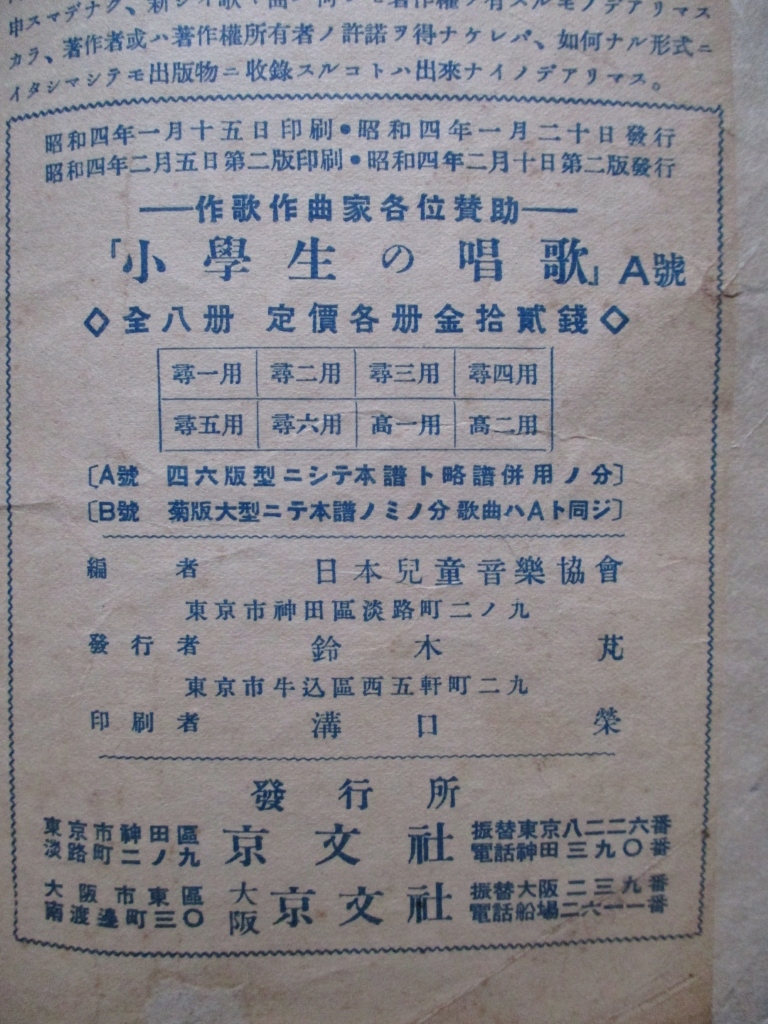 申スマデナク、新シイ歌ヤ曲ハ何レモ著作權ノ有スルモノデアリマス
カラ、著作者或ハ著作權所有者ノ許諾ヲ得ナケレバ、如何ナル形式ニ
イタシマシテモ出版物ニ收錄スルコトハ出來ナイノデアリマス。
昭和四年一月十五日印刷●昭和四年一月二十日發行
昭和四年二月五日第二版印刷●昭和四年二月十日第二版發行
──作歌作曲家各位賛助──
「小學生の唱歌」A號
◇全八册 定價各册金拾貳錢◇
尋一用 尋二用 尋三用 尋四用
尋五用 尋六用 高一用 高二用
〔A號 四六版型ニシテ本譜ト略譜併用ノ分〕
〔B號 菊版大型ニテ本譜ノミノ分歌曲ハAト同ジ〕
編者 日本兒童音樂協會
東京市神田區淡路町二ノ九
發行者 鈴木芃
東京市牛込區西五軒町二九
印刷者 溝口榮
發行所
東京市神田區
淡路町二ノ九
京文社
振替東京八二二六番
電話神田三九〇番
大阪市東區
南渡邊町三〇
大阪京文社
振替大阪二三九番
電話船場二六一一番